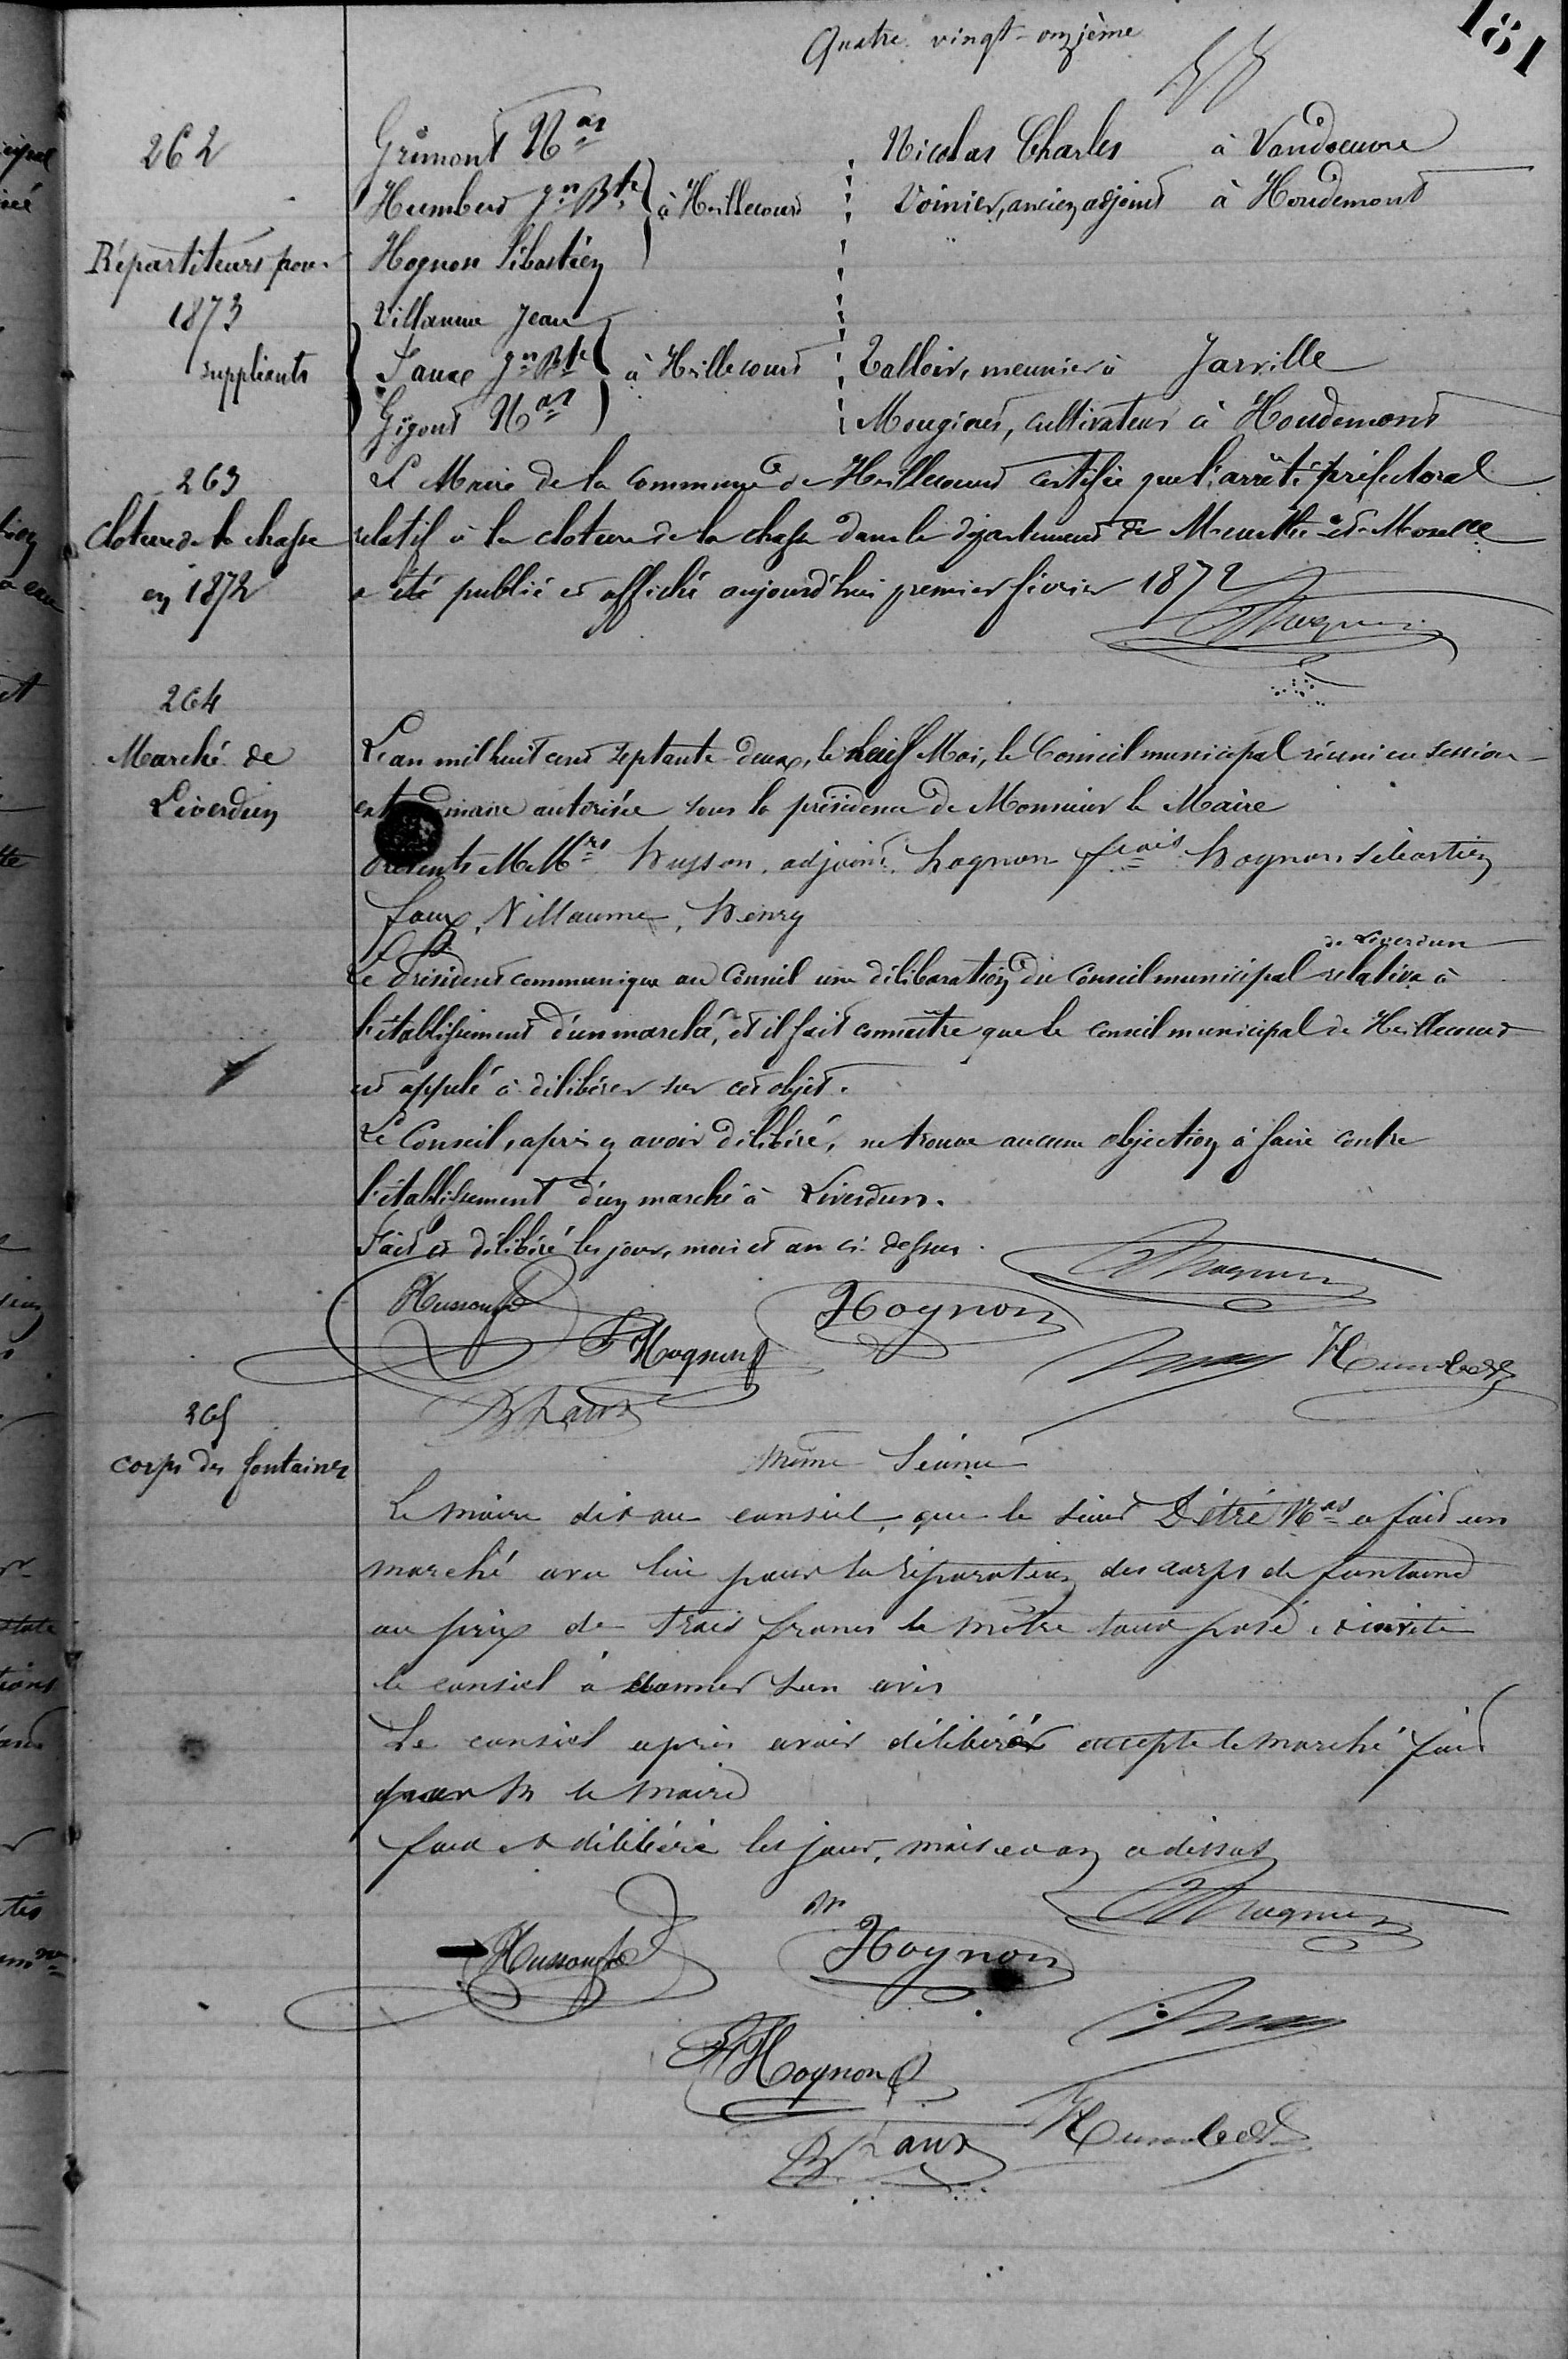 Quatre vingt-onzième
181
262
Répartiteurs pour
1873
suppléants
Grimont Nas
Humbert Jn Bte à Heillecourt
Hognon Sébastien
Villaume Jean
Faux Jn Bte à Heillecourt
Gigout Nas
Nicolas Charles à Vandoeuvre
Voinier, ancien adjoint à Houdemont
Talloir, meunier à Jarville
Mougines, cultivateur à Houdemont
263
Cloture de la chasse
en 1872
Le Maire de la Commune de Heillecourt certifie que l'arrêté préfectoral
relatif à la cloture de la chasse dans le département de Meurthe-et-Moselle
a été publié et affiché aujourd'hui premier février 1872
264
Marché de
Liverdun
L'an mil huit cent septante deux, le neuf Mai, le Conseil municipal réuni en session
autorisée sous la présidence de Monsieur le Maire
Présents MMrs Husson, adjoint, hognon frais hognon sébastien
faux, Villaume, henry
de Liverdun
Le Président communique au Conseil une délibération du Conseil municipal relative à
l'établissement d'un marché, et il fait connaître que le conseil municipal de Heillecourt
est appelé à délibérer sur cet objet.
Le Conseil, après en avoir délibéré, ne trouve aucune objection à faire contre
l'établissement d'un marché à Liverdun.
Fait et délibéré les jour, mois et an ci-dessus.
Husson
Hognon
F Hognon
Humbert
B Faux
265
corps des fontaines
même Séance
Le maire dit au conseil, que le sieur Détré Nas a fait un
marché avec lui pour la réparation des corps de fontaine
au prix de trois francs le mètre tout posé, et invite
le conseil à donner son avis
Le conseil après avoir délibéré accepte le marché fait
par Mr le maire
fait et délibéré les jour, mois et an ci dessus
Husson
Hognon
F Hognon
B Faux
Humbert